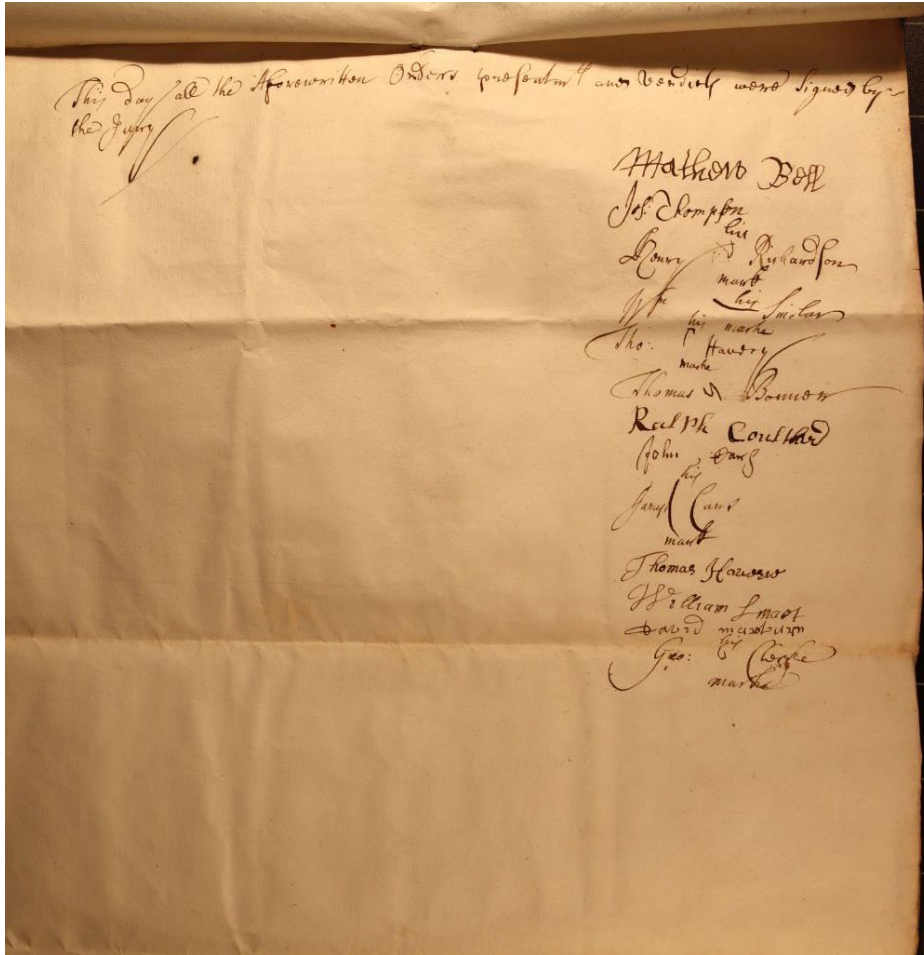 This day all the Aforewritten Orders presentmts and Verdicts were Signed by
the Jury
Mathew Bell
Jos: Thompson
his
Henry Richardson
mark
Wm his Sinclar
his marke
Tho: Havery
marke
Thomas Bonner
Ralph Coulthard
John
his
James Carr
mark
Thomas
William Smart
David
Geo: his Clerke
marke